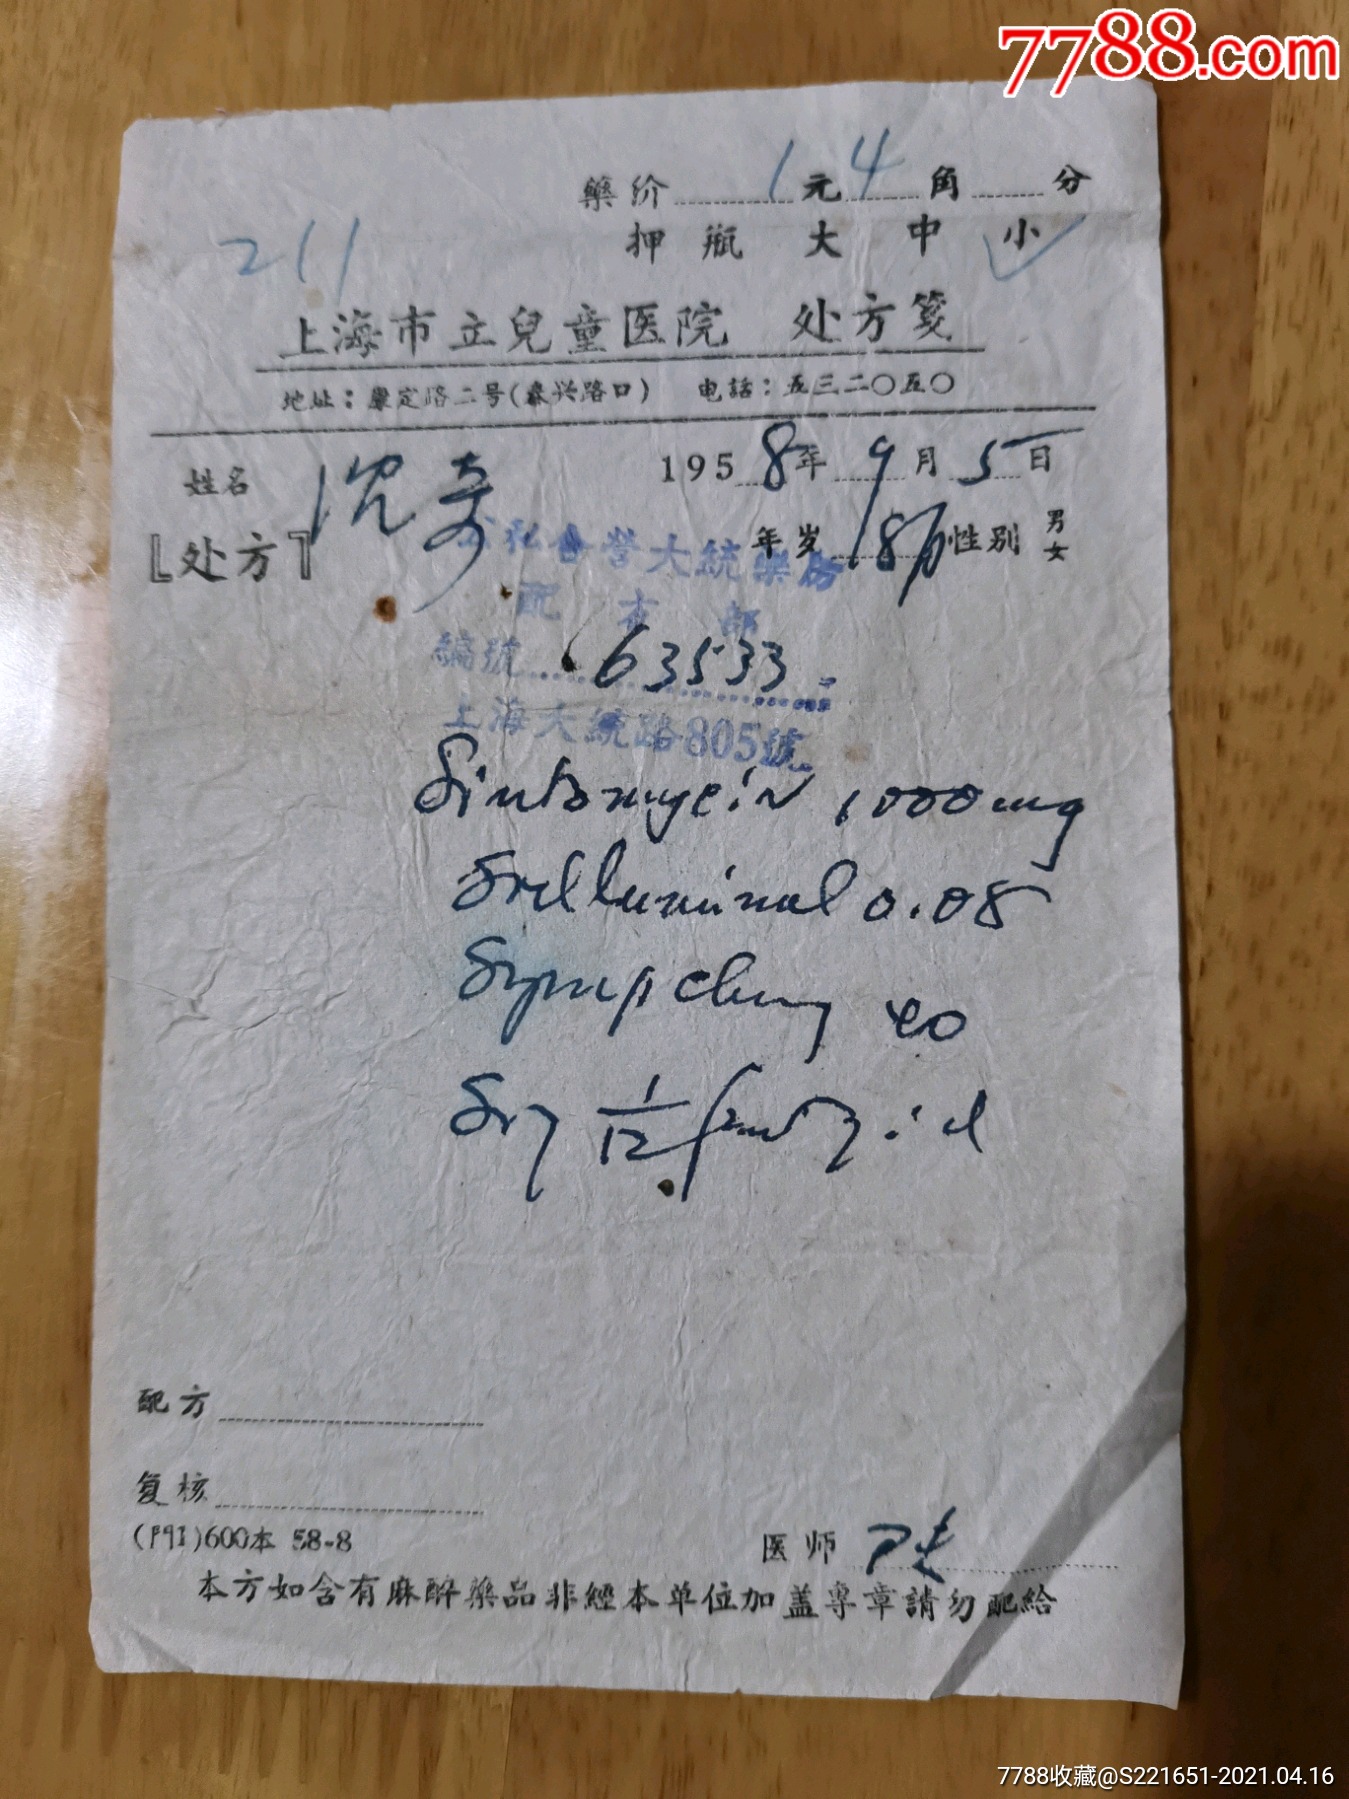 7788.com
藥价 1 元 4 角 分
押瓶 大 中 小
211
上海市立兒童医院 处方箋
地址：康定路二号(泰兴路口) 电話：五三二〇五〇
姓名 沈奇 1958年 9月 5日
年岁 18/12 性别 男女
[处方]
公私合营大統藥房
配方部
編號 63533
上海大統路805號
Sintomycin 1000mg
luminal 0.08
Syrup 40
Sig 1/12 i d
配方
复核
(門I)600本 58-8
医师
本方如含有麻醉藥品非經本单位加盖專章請勿配給
7788收藏@S221651-2021.04.16